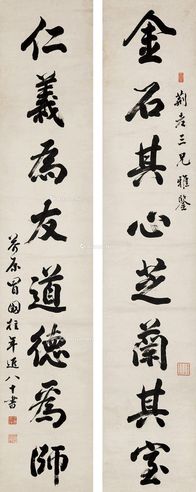 金石其心芝蘭其室
荆老三兄雅鑒
仁義為友道德為師
國柱年邁八十書